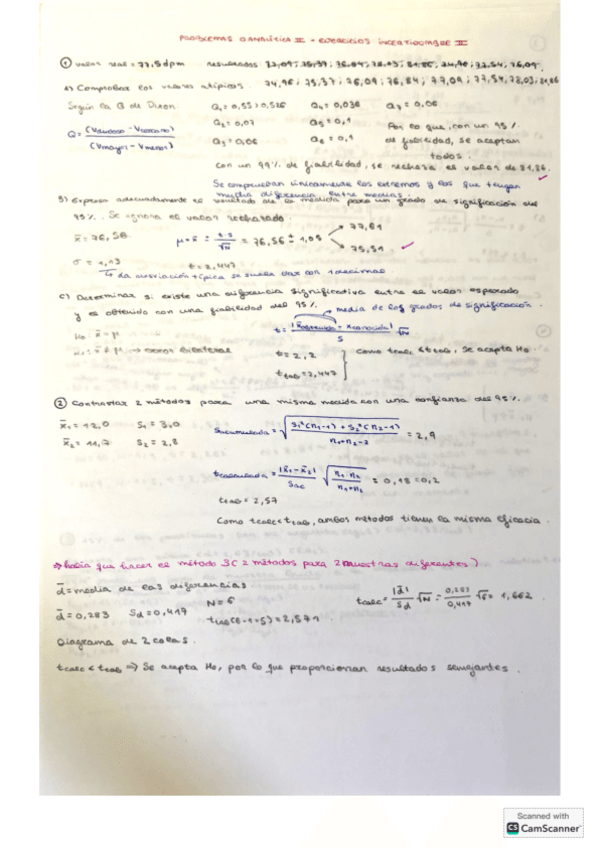 PROBLEMAS QANALÍTICA II - EJERCICIOS INCERTIDUMBRE II
① Valor real = 77,5 dpm resultados 77,09; 75,37; 76,84; 78,03; 81,86; 74,96; 77,54; 76,09.
a) Comprobar los valores atípicos. 74,96; 75,37; 76,09; 76,84; 77,09; 77,54; 78,03; 81,86
Según la Q de Dixon. Q₁ = 0,55 > 0,526 Q₄ = 0,036 Q₇ = 0,06
Q = (Vdudoso - Vcercano) / (Vmayor - Vmenor) Q₂ = 0,07 Q₅ = 0,1 Por lo que, con un 95%
Q₃ = 0,06 Q₆ = 0,1 de fiabilidad, se aceptan
todos.
con un 99% de fiabilidad, se rechaza el valor de 81,86.
Se comprueban únicamente los extremos y los que tengan
mucha diferencia entre medias.
b) Expresa adecuadamente el resultado de la medida para un grado de significación del
95%. Se ignora el valor rechazado. 77,61
x̄ = 76,56 μ = x̄ ± t·s/√N = 76,56 ± 1,05
75,51
σ = 1,13 t = 2,447
la desviación típica se suele dar con 1 decimal
c) Determinar si existe una diferencia significativa entre el valor esperado
y el obtenido con una fiabilidad del 95%. media de los grados de significación.
H₀ x̄ = μ t = |xobtenido - xconocido| / S √N
H₁: x̄ ≠ μ → error bilateral t = 2,2 como tcalc < ttab, se acepta H₀
ttab = 2,447
② Contrastar 2 métodos para una misma medida con una confianza del 95%.
x̄₁ = 12,0 S₁ = 3,0 Sacumulada = √(S₁²(n₁-1) + S₂²(n₂-1) / n₁+n₂-2) = 2,9
x̄₂ = 11,7 S₂ = 2,8
tcalculada = |x̄₁ - x̄₂| / Sac √(n₁·n₂ / n₁+n₂) = 0,18 ≈ 0,2
ttab = 2,57
Como tcalc < ttab, ambos métodos tienen la misma eficacia.
⇒ había que hacer el método 3 (2 métodos para 2 muestras diferentes)
d̄ = media de las diferencias. N = 6 tcalc = |d̄| / Sd √N = 0,283 / 0,417 √6 = 1,662.
d̄ = 0,283 Sd = 0,417 ttab(6-1=5) = 2,571
Diagrama de 2 colas.
tcalc < ttab ⇒ Se acepta H₀, por lo que proporcionan resultados semejantes.
Scanned with
CS CamScanner